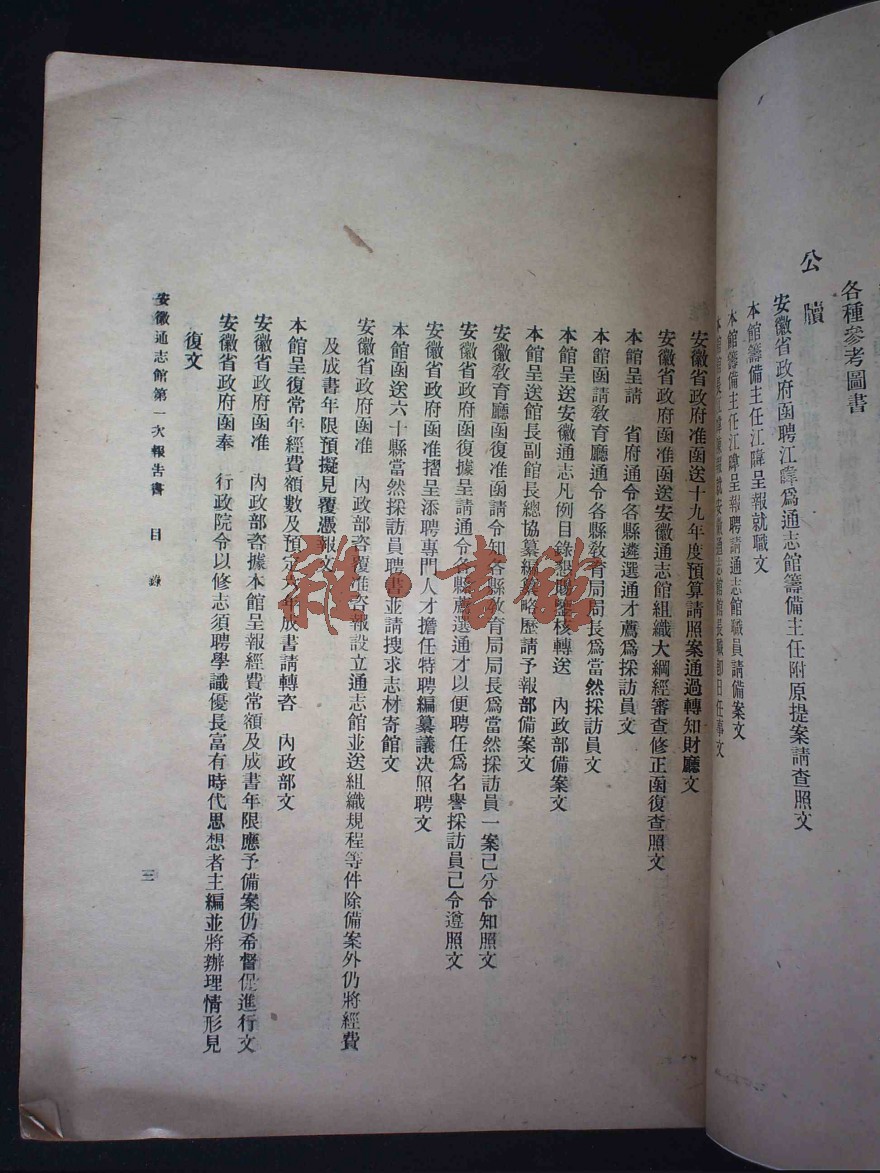 各種參考圖書
公牘
安徽省政府函聘江暐爲通志館籌備主任附原提案請查照文
本館籌備主任江暐呈報就職文
本館籌備主任江暐呈報聘請通志館職員請備案文
安徽省政府准函送十九年度預算請照案通過轉知財廳文
安徽省政府准函送安徽通志館組織大綱經審查修正函復查照文
本館呈請 省府通令各縣遴選通才薦爲採訪員文
本館函請教育廳通令各縣教育局局長爲當然採訪員文
本館呈送安徽通志凡例目錄懇賜鑒核轉送 內政部備案文
本館呈送館長副館長總協纂編纂略歷請予報部備案文
安徽教育廳函復准函請令知各縣教育局局長爲當然採訪員一案已分令知照文
安徽省政府函復據呈請通令各縣薦選通才以便聘任爲名譽採訪員已令遵照文
安徽省政府函准摺呈添聘專門人才擔任特聘編纂議决照聘文
本館函送六十縣當然採訪員聘書並請搜求志材寄館文
安徽省政府函准 內政部咨覆准咨報設立通志館並送組織規程等件除備案外仍將經費
及成書年限預擬見覆憑報文
本館呈復常年經費額數及預定六年成書請轉咨 內政部文
安徽省政府函准 內政部咨據本館呈報經費常額及成書年限應予備案仍希督促進行文
安徽省政府函奉 行政院令以修志須聘學識優長富有時代思想者主編並將辦理情形見
復文
安徽通志館第一次報告書 目錄
三
雜·書館